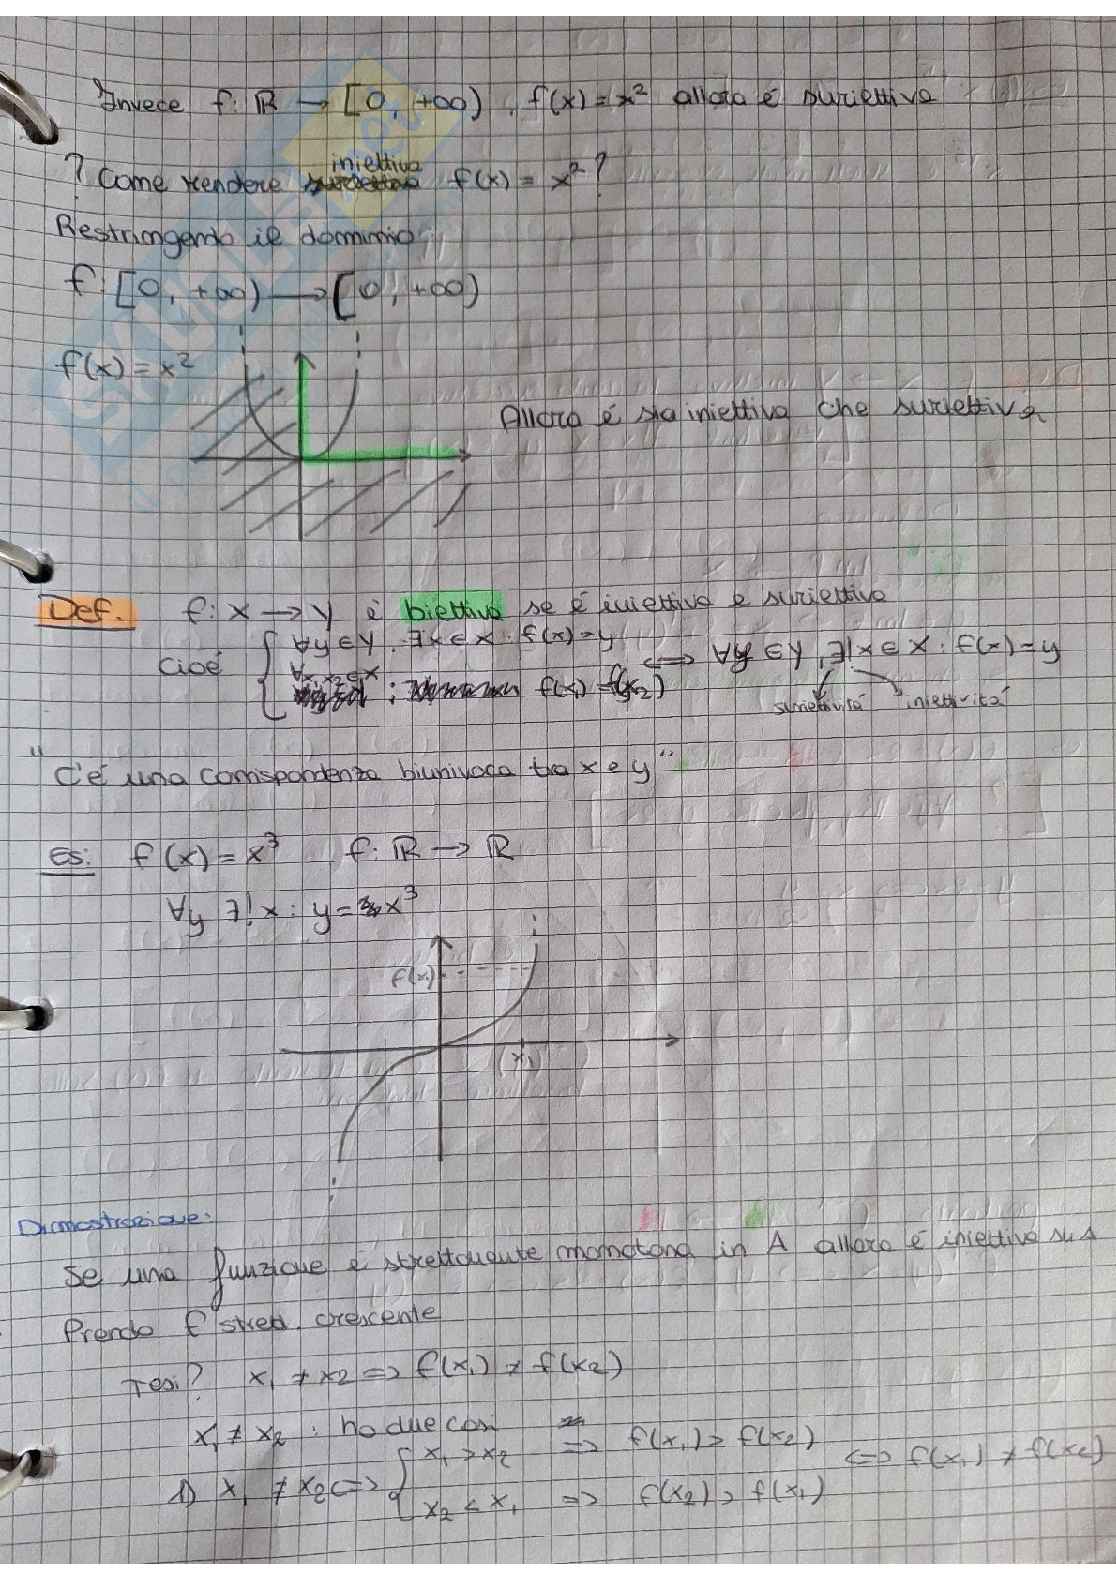 Invece f: ℝ → [0, +∞), f(x) = x² allora é suriettiva
? Come rendere iniettiva f(x) = x²?
Restringendo il dominio:
f: [0, +∞) → [0, +∞)
f(x) = x²
Allora é sia iniettiva che suriettiva
Def. f: X → Y è biettiva se é iniettiva e suriettiva
cioé { ∀y ∈ Y, ∃x ∈ X : f(x) = y ⟺ ∀y ∈ Y, ∃! x ∈ X : f(x) = y
∀x₁,x₂ ∈ X : f(x₁) f(x₂)
suriettività iniettività
"C'é una corrispondenza biunivoca tra x e y"
Es: f(x) = x³ f: ℝ → ℝ
∀y ∃! x : y = x³
f(x₁)
(x₁)
Dimostrazione:
Se una funzione è strettamente monotona in A allora é iniettiva su A
Prendo f stret. crescente
Tesi? x₁ ≠ x₂ => f(x₁) ≠ f(x₂)
x₁ ≠ x₂ : ho due casi
1) x₁ ≠ x₂ <=> { x₁ > x₂ => f(x₁) > f(x₂) <=> f(x₁) ≠ f(x₂)
x₂ < x₁ => f(x₂) > f(x₁)